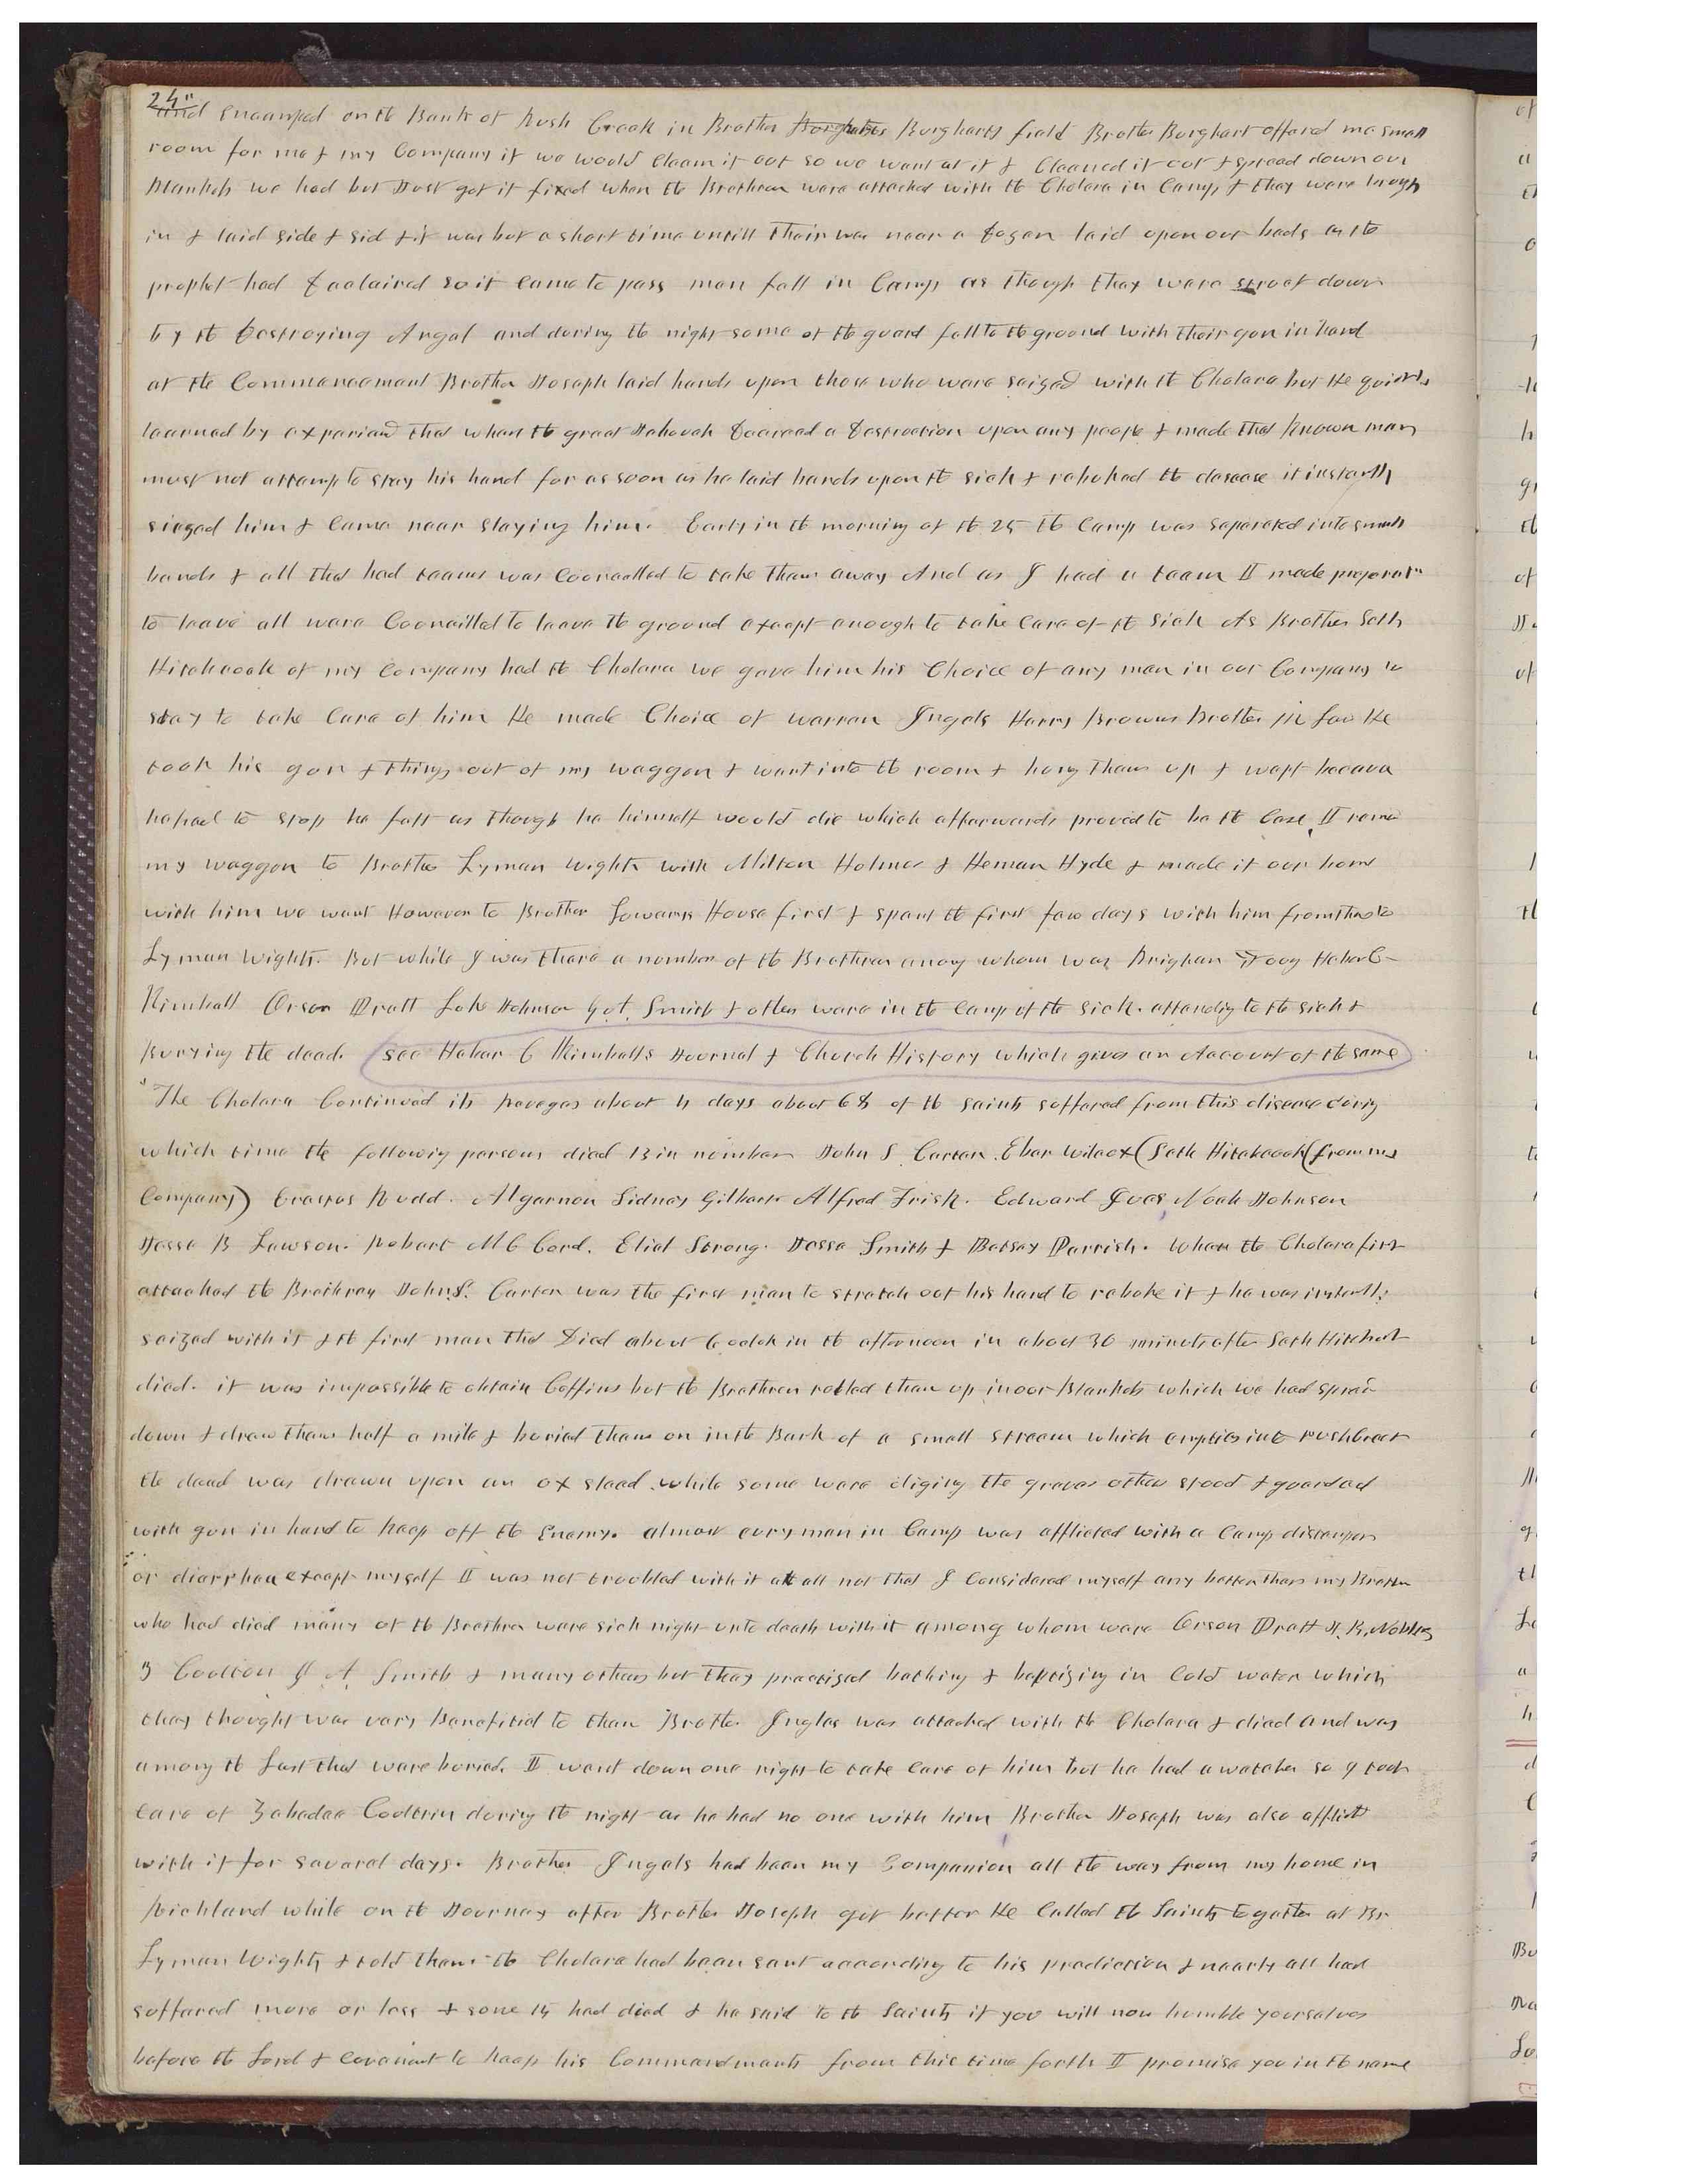 24"
and encamped on the Bank of Rush Creek in Brother Burgharts field Brother Burghart offered me small
room for me & my Company if we would Clean it out so we went at it & Cleaned it out & spread down our
Blankets we had but Just got it fixed when the Brethren were attacked with the Cholera in Camp & they were brought
in & laid side & sid & it was but a short time untill their was near a Dozen laid upon our beds as the
prophet had Declaired so it came to pass men fell in Camp as though they were struck down
by the Destroying Angel and during the night some of the guard fell to the ground with their gun in hand
at the Commencement Brother Joseph laid hands upon those who were seized with the Cholera but He quickly
learned by experiance that when the great Jehovah Decreed a Destruction upon any people & made that known man
must not attemp to stay his hand for as soon as he laid hands upon the sick & rebuked the desease it instantly
siezed him & came near slaying him. Early in the morning of the 25 the Camp was seperated into small
bands & all that had teams was Councelled to take them away And as I had a team I made preperat"
to leave all were Councilled to leave the ground except enough to take care of the Sick As Brother Seth
Hitchcock of my company had the Cholera we gave him his Choice of any man in our Company to
stay to take care of him He made Choice of warren Ingels Harry Browns Brother in law He
took his gun & things out of my waggon & went into the room & hung them up & wept because
he had to stop he felt as though he himself would die which afterwards proved to be the case, I
my waggon to Brother Lyman wights with Milton Holmes & Heman Hyde & made it our home
with him we went However to Brother House first & spent the first few days with him from thence to
Lyman wights. But while I was there a number of the Brethren among whom was Brigham Young Heber C
Kimball Orson Pratt Luke Johnson Smith & others were in the camp of the sick. attending to the sick &
Burying the dead. (see Heber C Kimballs Journal & Church History which gives an Account of the same)
"The Cholera Continued its Raveges about 4 days about 68 of the saints suffered from this disease during
which time the following persons died 13 in number John S Carter. Eber wilcox (Seth Hitchcock (from my
Company) Erastus Rudd. Algernon Sidney Gilbert Alfred Fisk. Edward Ives, Noah Johnson
Jesse B Lawson. Robert McCord. Elial Strong. Jesse Smith & Betsey Parrish. When the Cholera first
attacked the Brethren John S. Carter was the first man to stretch out his hand to rebuke it & he was instantly
seized with it & the first man that Died about 6 oclok in the afternoon in about 30 minuts after Seth Hitchcock
died. it was impossible to obtain Coffins but the Brethren rolled them up in our Blankets which we had spread
down & drew them half a mile & buried them on in the Bank of a small stream which empties into rushcreek
the dead was drawn upon an ox slead. while some were diging the graves others stood & guarded
with gun in hand to keep off the Enemy. almost evry man in Camp was afflicted with a Camp distemper
or diarrhea except myself I was not troubled with it at all not that I Considered myself any better than my Brother
who had died many of the Brethren were sick night unto death with it among whom were Orson Pratt J. B. Nobles
Z Coultron G A Smith & many others but they practised bathing & baptizing in Cold water which
they thought was very Benefitial to them Brother Ingles was attacked with the Cholera & died and was
among the last that were buried. I went down one night to take care of him but he had a watcher so I took
care of Zebedee Coultrin during the night as he had no one with him Brother Joseph was also afflict
with it for several days. Brother Ingels had been my Companion all the way from my home in
Richland while on the Journey after Brother Joseph got better He Called the Saints together at Br
Lyman wights & told them the Cholera had been sent according to his prediction & nearly all had
suffered more or less & some 14 had died & he said to the Saints if you will now humble yourselves
before the Lord & covenant to keep his Commandments from this time forth I promise you in the name